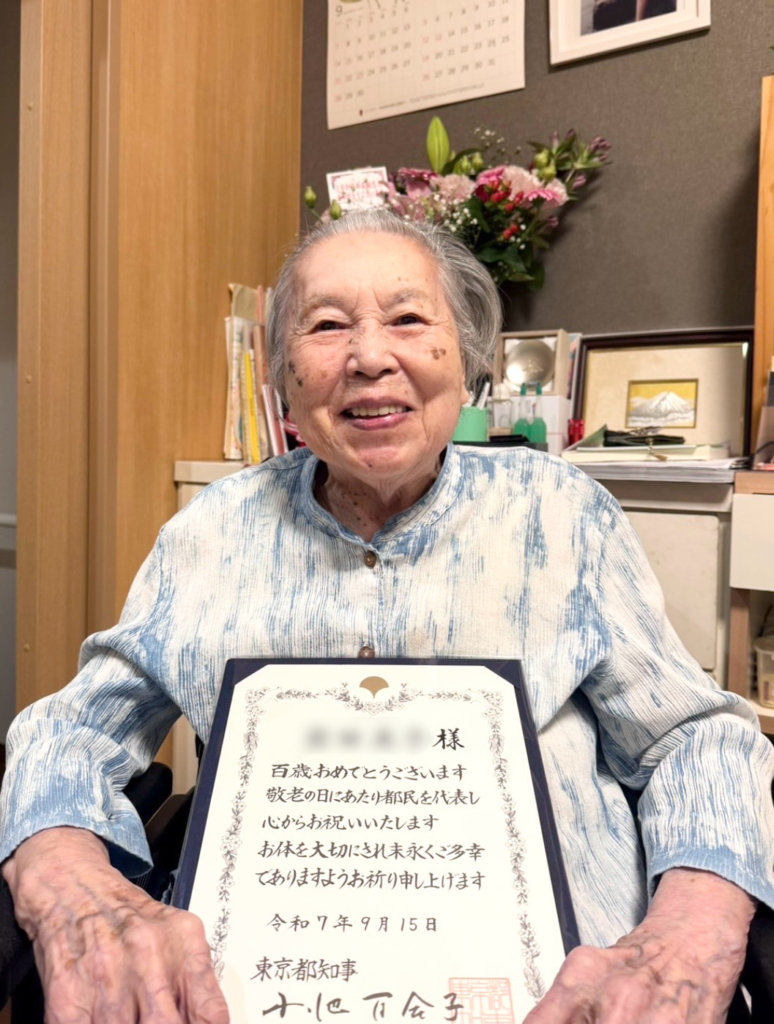 9
様
百歳おめでとうございます
敬老の日にあたり都民を代表し
心からお祝いいたします
お体を大切にされ末永くご多幸
でありますようお祈り申し上げます
令和7年9月15日
東京都知事
小池百合子